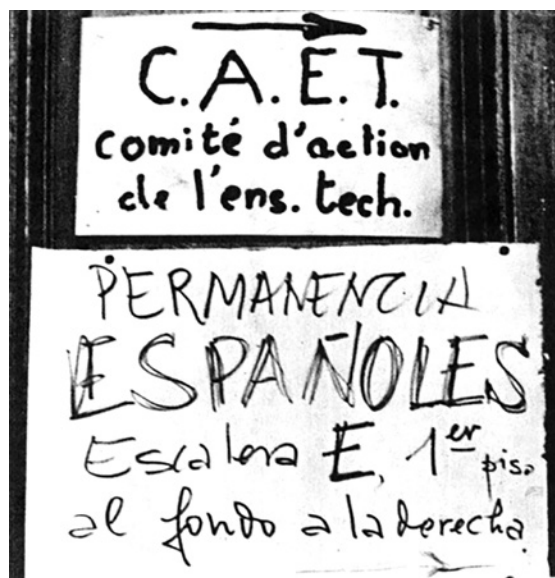 C.A.E.T.
comité d'action
de l'ens. tech.
PERMANENCIA
ESPAÑOLES
Escalera E, 1er piso
al fondo a la derecha